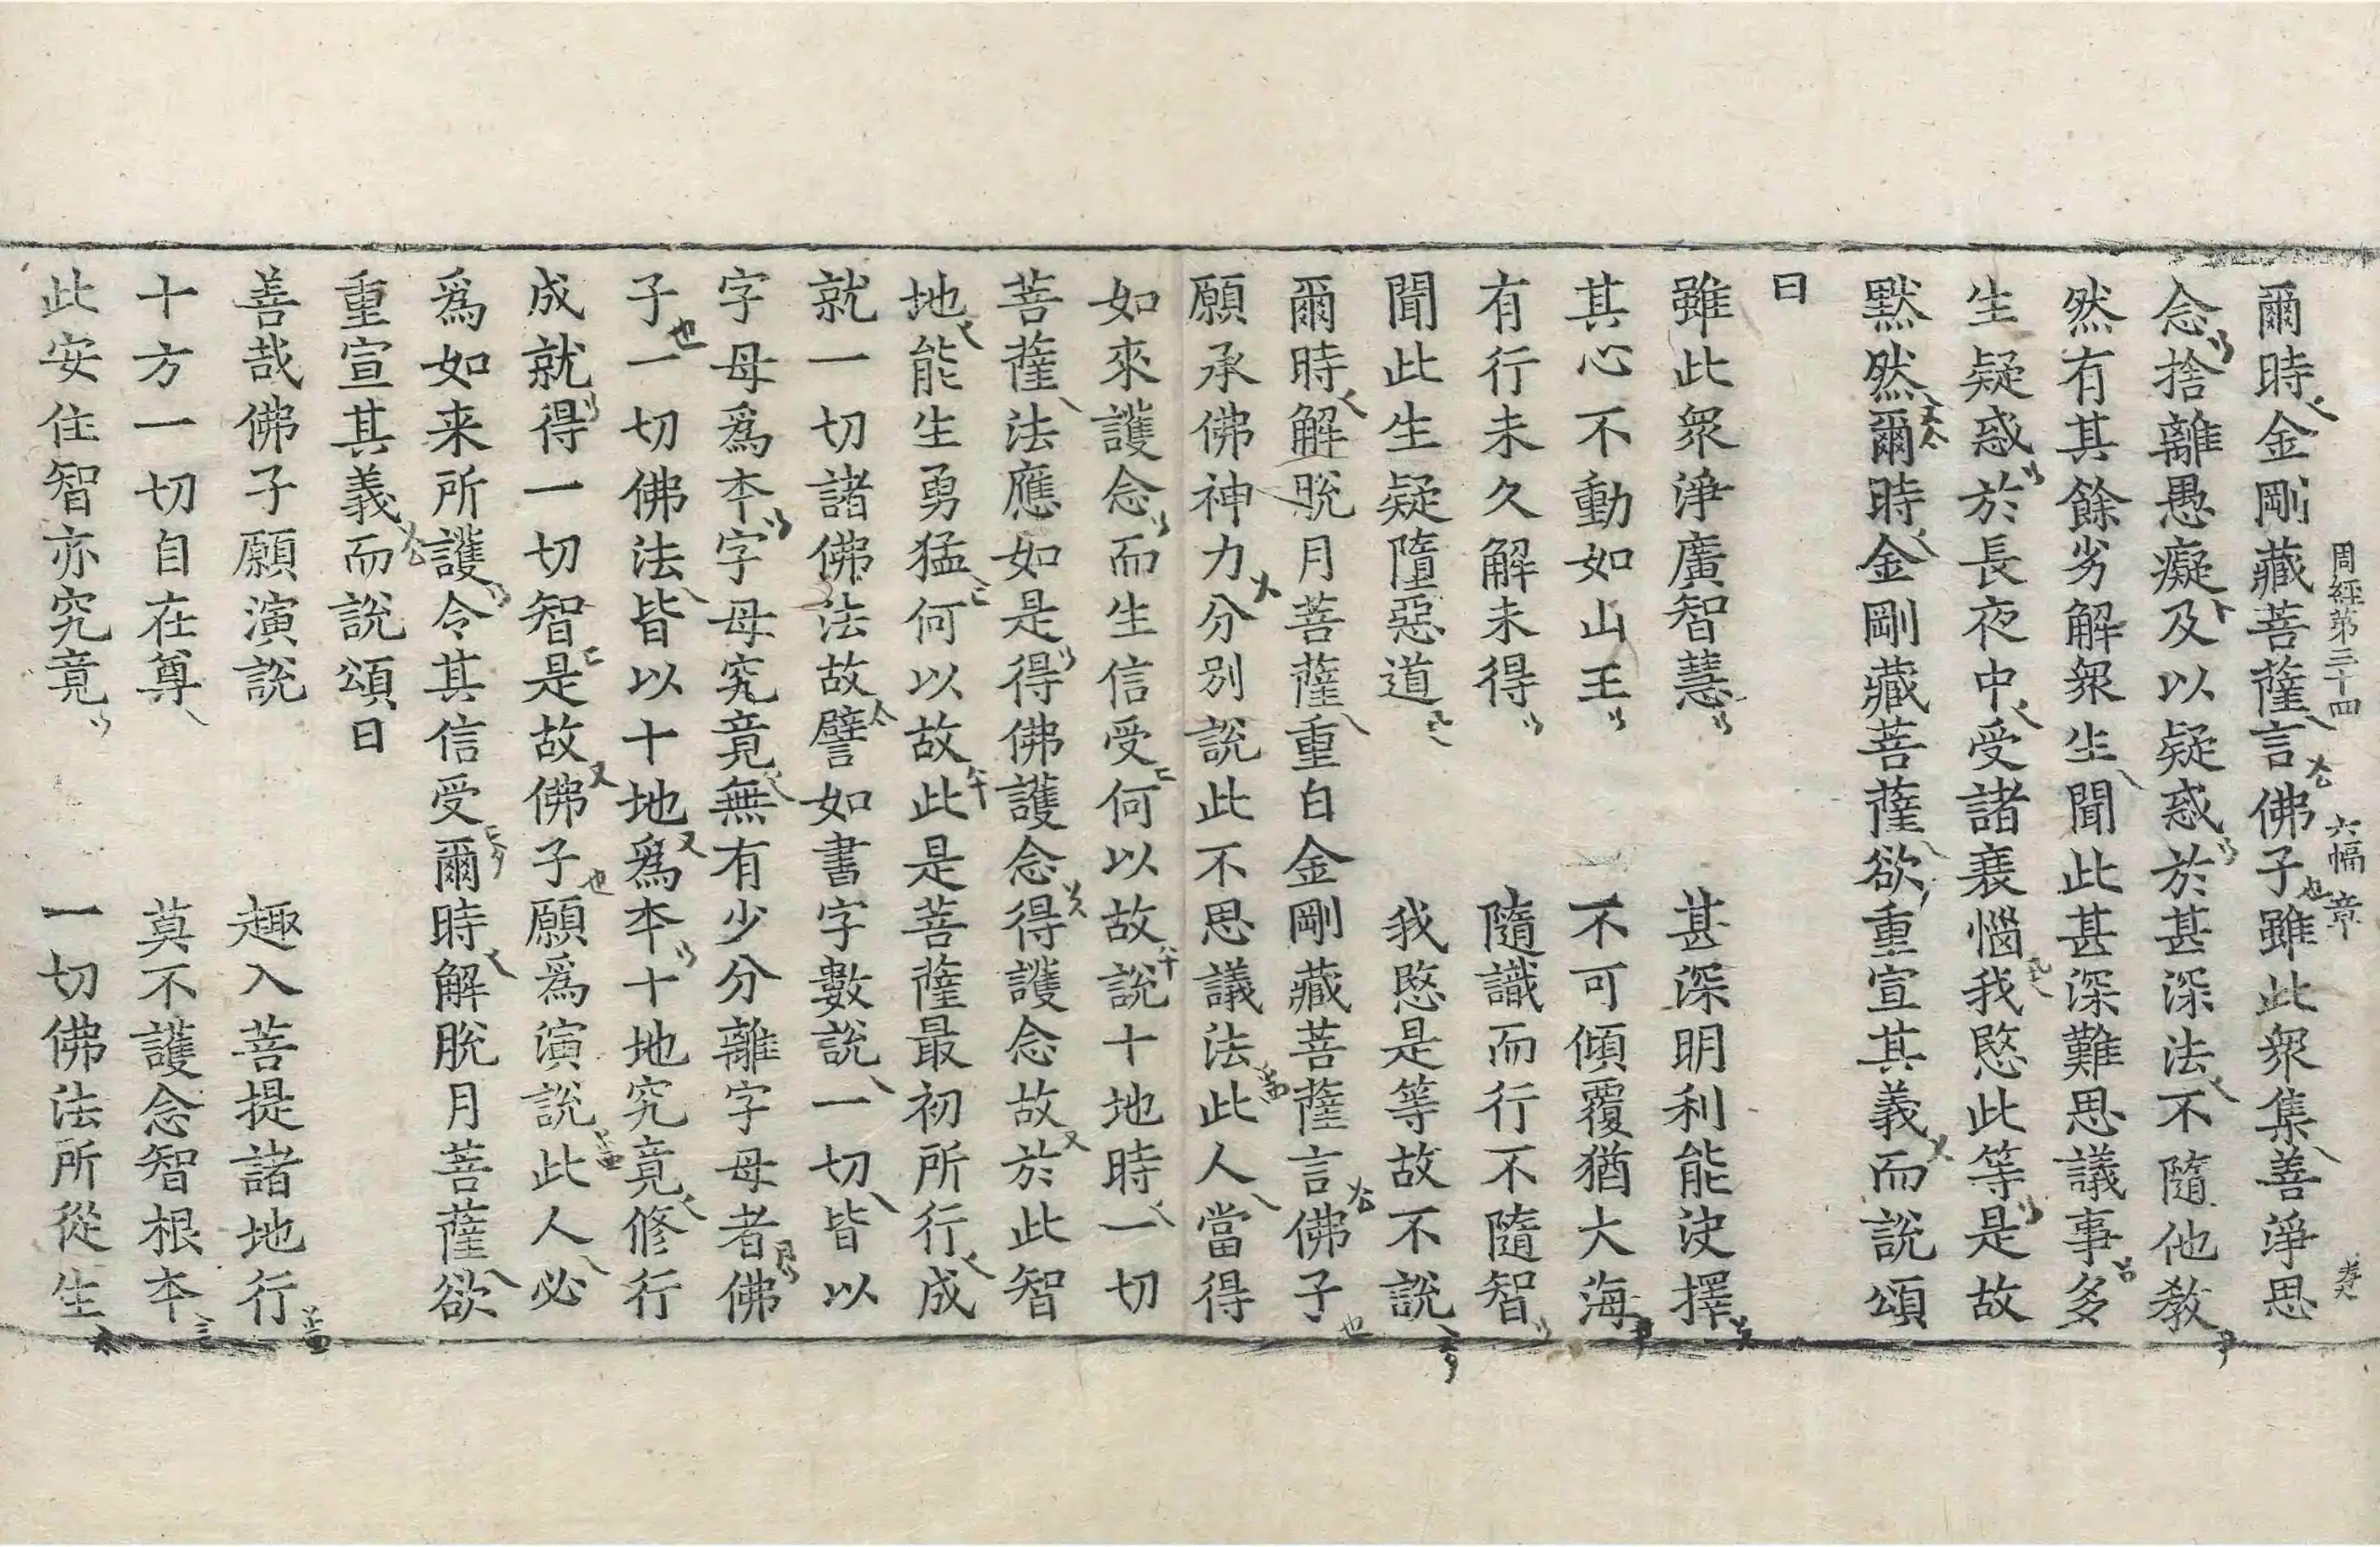 周經第三十四 六幅 章
爾時金剛藏菩薩言佛子雖此衆集善淨思
念捨離愚癡及以疑惑於甚深法不隨他教
然有其餘劣解衆生聞此甚深難思議事多
生疑惑於長夜中受諸衰惱我愍此等是故
默然爾時金剛藏菩薩欲重宣其義而說頌
曰
雖此衆淨廣智慧 甚深明利能決擇
其心不動如山王 不可傾覆猶大海
有行未久解未得 隨識而行不隨智
聞此生疑墮惡道 我愍是等故不說
爾時解脫月菩薩重白金剛藏菩薩言佛子
願承佛神力分別說此不思議法此人當得
如來護念而生信受何以故說十地時一切
菩薩法應如是得佛護念得護念故於此智
地能生勇猛何以故此是菩薩最初所行成
就一切諸佛法故譬如書字數說一切皆以
字母爲本字母究竟無有少分離字母者佛
子一切佛法皆以十地爲本十地究竟修行
成就得一切智是故佛子願爲演說此人必
爲如来所護令其信受爾時解脫月菩薩欲
重宣其義而說頌曰
善哉佛子願演說 趣入菩提諸地行
十方一切自在尊 莫不護念智根本
此安住智亦究竟 一切佛法所從生